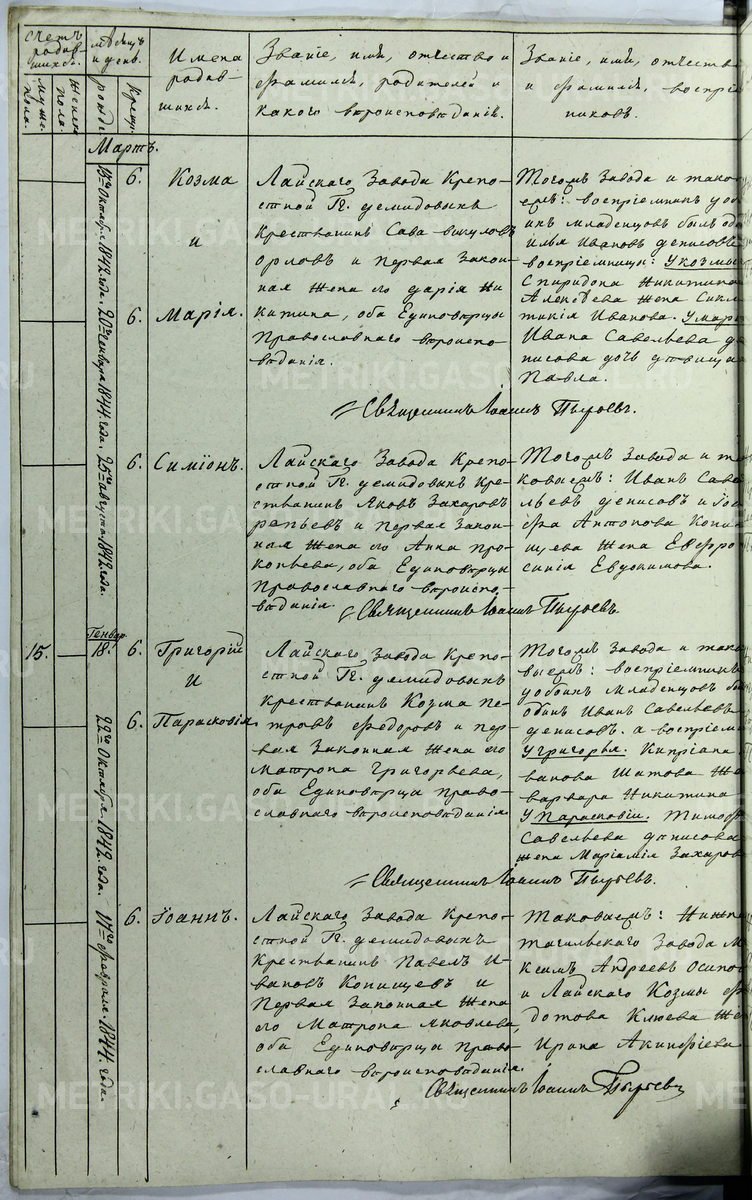 Счетъ родив-шихся.
мужеска пола.
женска пола.
Мѣсяцъ и день.
рожде
Крещ:
Имена
родив-
шихся.
Званіе, имя, отчество и
фамилія, родителей и
какого вѣроисповѣданія.
Званіе, имя, отчество
и фамилія, воспріем-
никовъ.
Мартъ.
Октября 1842 года.
Генваря 1844 года.
6.
Козма
и
6.
Марія.
Лайскаго Завода Крепо-
стной Гг. Демидовыхъ
крестьянинъ Сава Викулов
Орловъ и первая закон-
ная жена его Дарія Ни-
китина, оба Единовѣрцы
Православнаго вѣроиспо-
вѣданія.
Тогожъ Завода и тако-
воспріемникъ у обо-
ихъ младенцовъ былъ
Илья Ивановъ Денисовъ
воспріемницы: У Козмы
Спиридона Никитина
Алексѣева жена Синк-
тикія Иванова. У Маріи
Ивана Савельева Де-
нисова дочь дѣвица
Павла.
Священникъ Іоаннъ Пырьевъ.
25го августа 1842 года.
6.
Симіонъ.
Лайскаго Завода Крепо-
стной Гг. Демидовыхъ кре-
стьянинъ Яковъ Захаровъ
Репьевъ и первая закон-
ная жена его Анна Про-
копьева, оба Единовѣрцы
Православнаго вѣроиспо-
вѣданія
Тогожъ Завода и та-
ковыежъ: Иванъ Саве-
льевъ Денисовъ и
Антонова Копи-
щева жена Евфро-
синія Евдокимова.
Священникъ Іоаннъ Пырьевъ.
15.
Генвар
18.
6.
Григорій
И
22го Октября 1842 года.
6.
Парасковія
Лайскаго Завода Крепо-
стной Гг. Демидовыхъ
крестьянинъ Козма Пе-
тровъ Федоровъ и пер-
вая законная жена его
Матрона Григорьева,
оба Единовѣрцы Право-
славнаго вѣроисповѣданія
Тогожъ Завода и тако-
выежъ: воспріемникъ
у обоихъ младенцовъ
Иванъ Савельевъ
Денисовъ. а воспріемн
У Григорья. Кипріана
ванова Шатова же
Варвара Никитина
У Парасковіи. Тимоф
Савельева Денисова
жена Маріамія Захаров
Священникъ Іоаннъ Пырьевъ.
17го Февраля 1844 года.
6.
Іоаннъ.
Лайскаго Завода Крепо-
стной Гг. Демидовыхъ
крестьянинъ Павелъ И-
вановъ Копищевъ и
Первая Законная жена
его Матрона Яковлева,
оба Единовѣрцы Право-
славнаго вѣроисповѣданія.
Таковыежъ: Нижне
тагильскаго Завода М
ксимъ Андреевъ Осипо
и Лайскаго Козмы Ф
дотова Клюева же
Ирина Акинфіева
Священникъ Іоаннъ Пырьевъ
METRIKI.GASO-URAL.RU